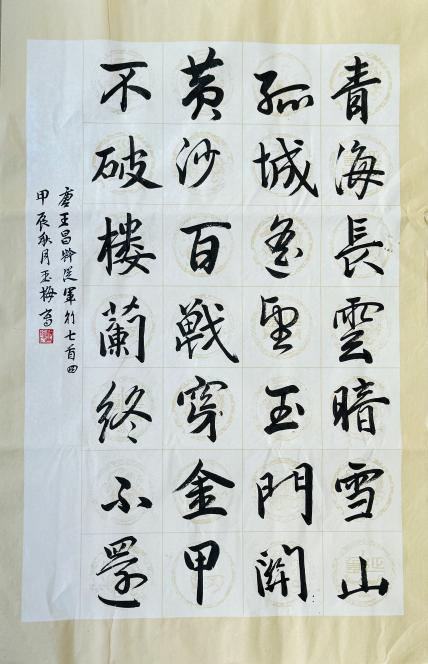 青海長雲暗雪山
孤城遥望玉門關
黄沙百戰穿金甲
不破楼蘭終不還
唐王昌齡從軍行七首四
甲辰秋月玉梅書